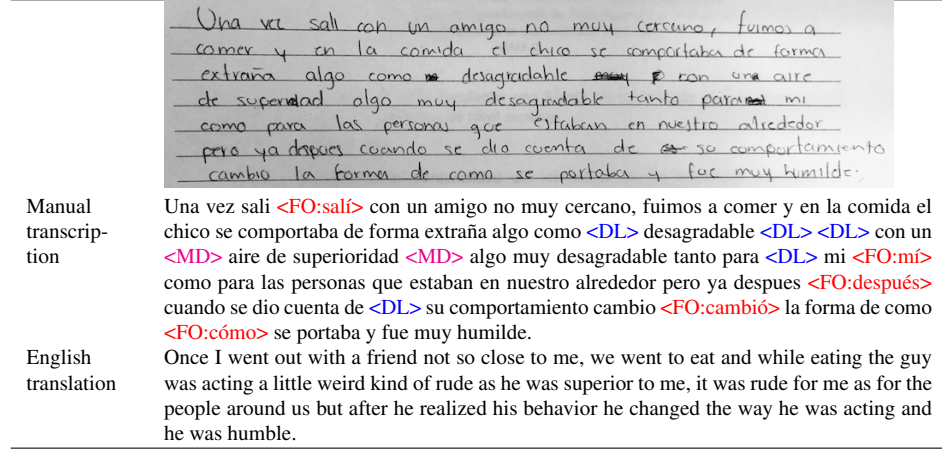 Una vez sali con un amigo no muy cercano, fuimos a
comer y en la comida el chico se comportaba de forma
extraña algo como desagradable con una aire
de superidad algo muy desagradable tanto para mi
como para las personas que estaban en nuestro alrededor
pero ya despues cuando se dio cuenta de su comportamiento
cambio la forma de como se portaba y fue muy humilde.
Manual transcrip-tion
Una vez sali <FO:salí> con un amigo no muy cercano, fuimos a comer y en la comida el
chico se comportaba de forma extraña algo como <DL> desagradable <DL> <DL> con un
<MD> aire de superioridad <MD> algo muy desagradable tanto para <DL> mi <FO:mí>
como para las personas que estaban en nuestro alrededor pero ya despues <FO:después>
cuando se dio cuenta de <DL> su comportamiento cambio <FO:cambió> la forma de como
<FO:cómo> se portaba y fue muy humilde.
English translation
Once I went out with a friend not so close to me, we went to eat and while eating the guy
was acting a little weird kind of rude as he was superior to me, it was rude for me as for the
people around us but after he realized his behavior he changed the way he was acting and
he was humble.